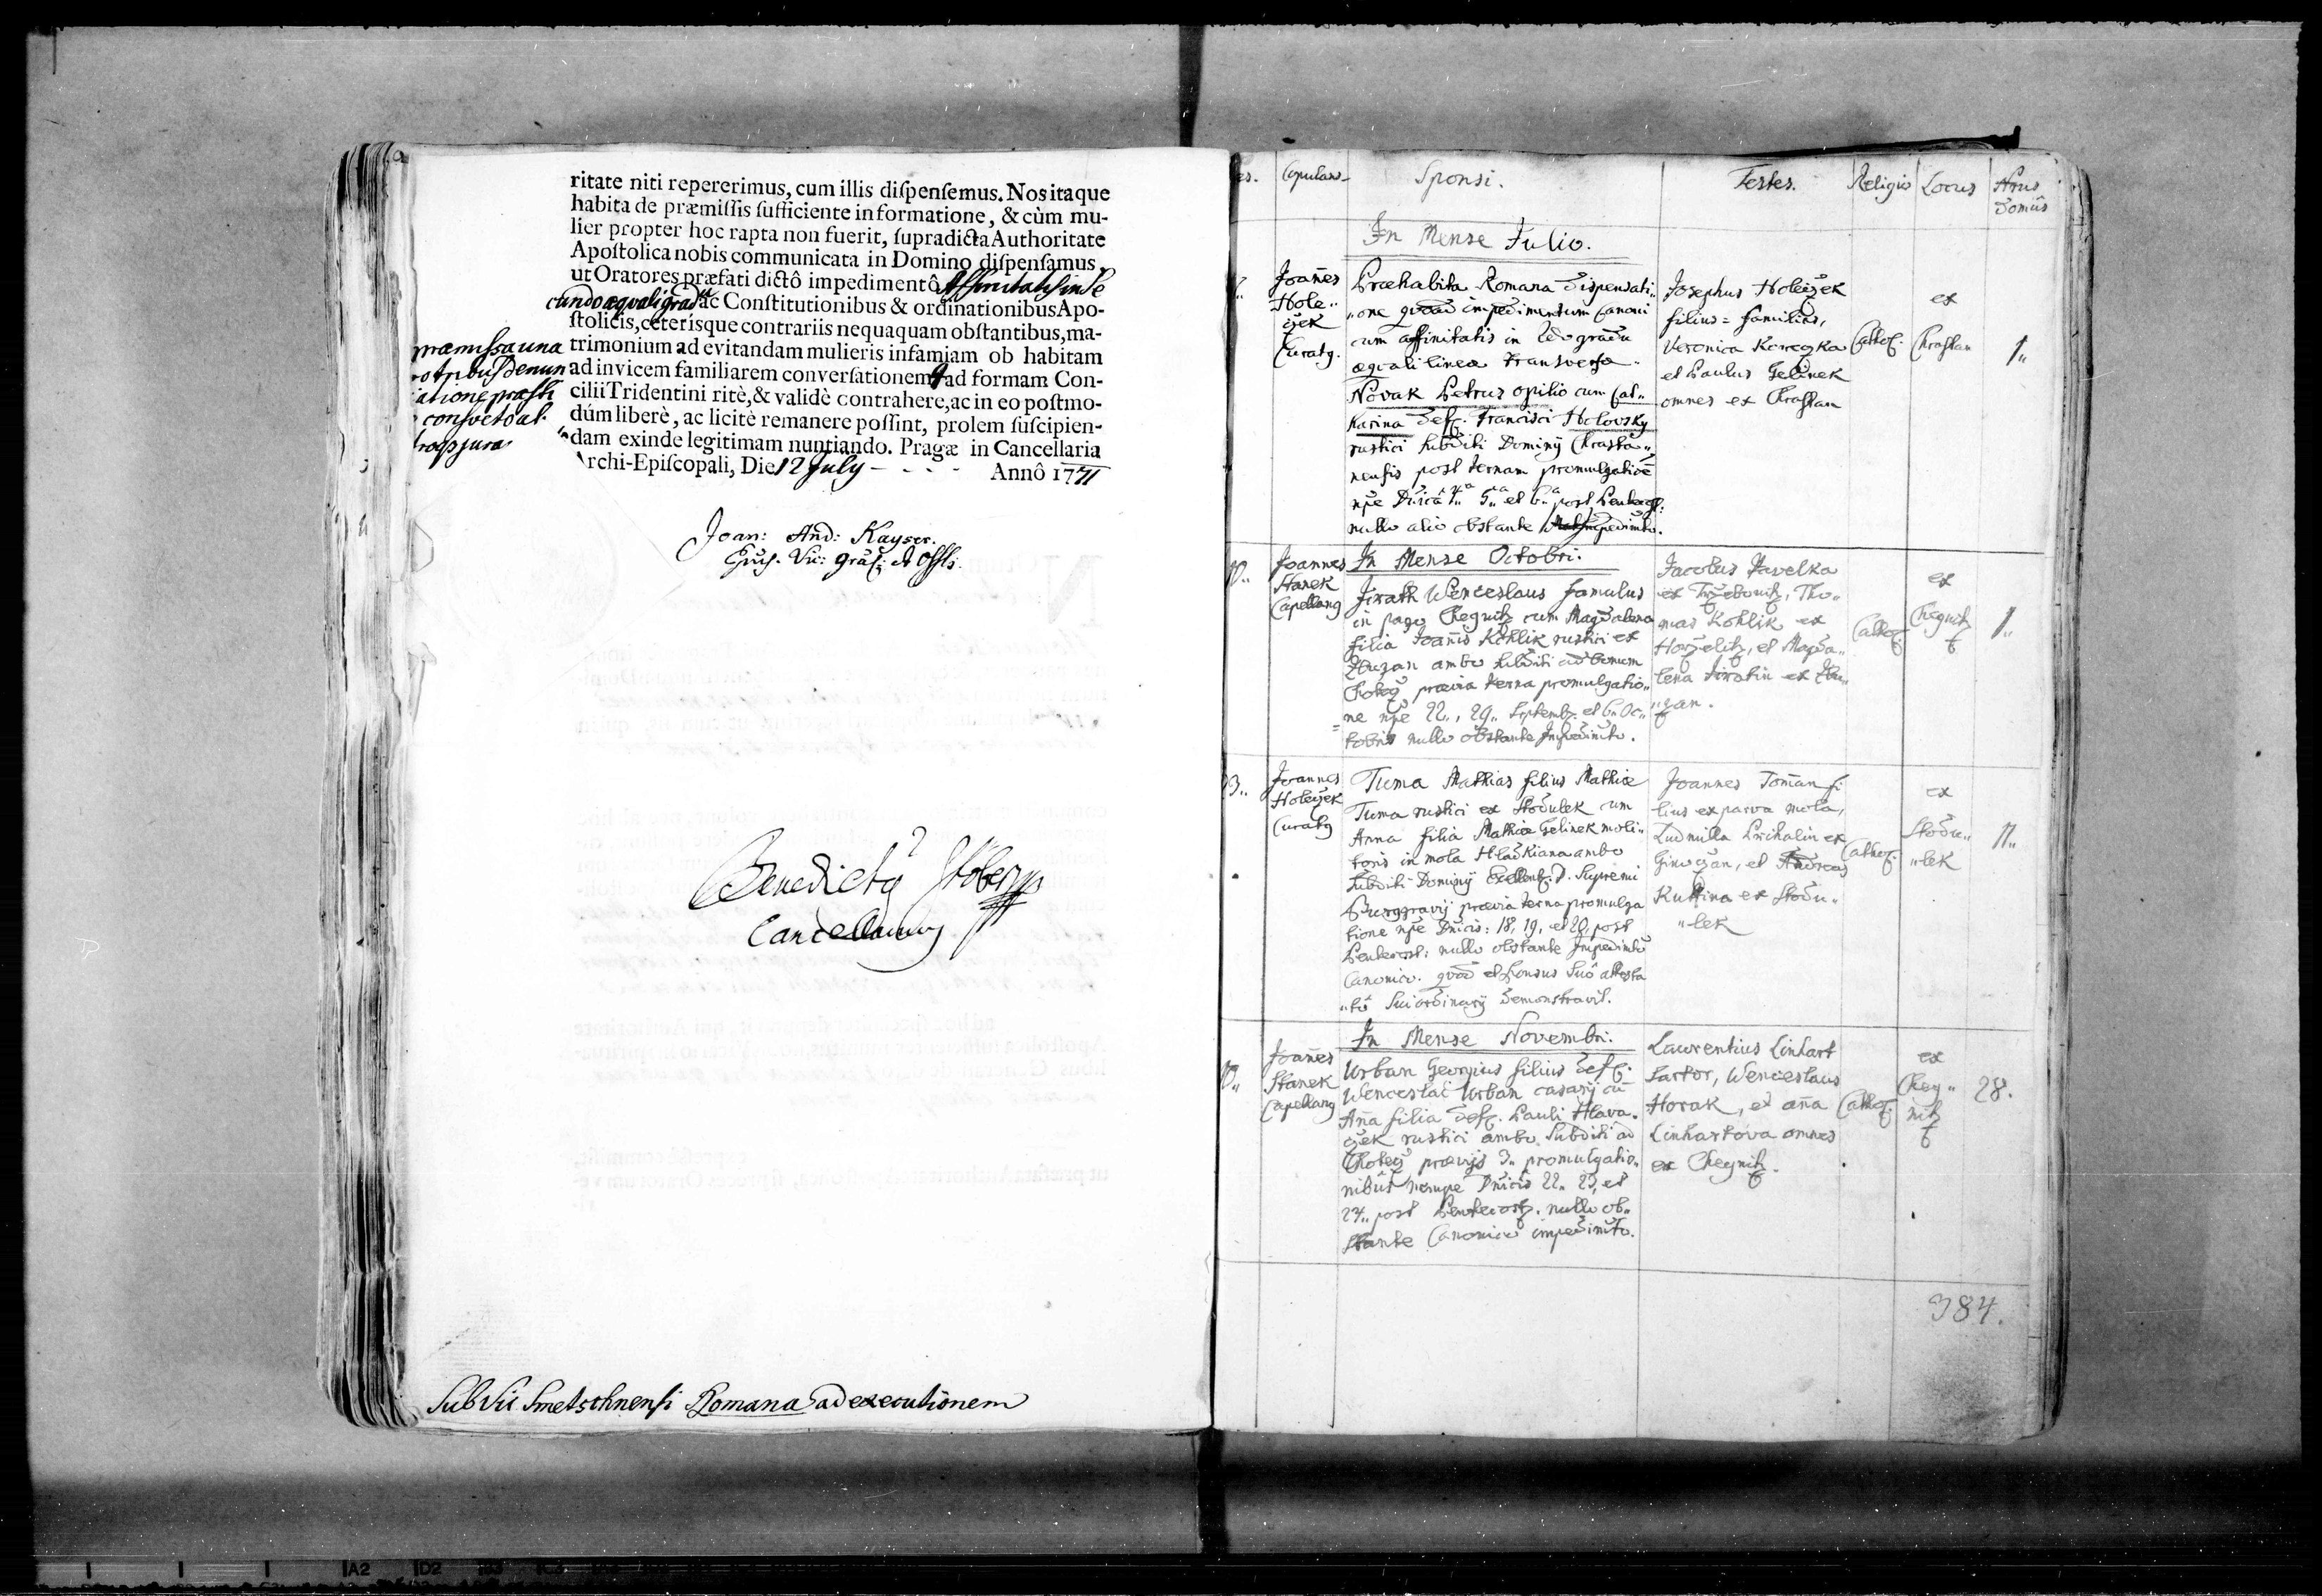 ritate niti repererimus, cum illis diſpenſemus. Nos itaque
habita de præmiſſis ſufficiente informatione, & cùm mu-
lier propter hoc rapta non fuerit, ſupradicta Authoritate
Apoſtolica nobis communicata in Domino diſpenſamus,
ut Oratores præfati dictô impedimentô Affinitatis in Se
cundo æquali gradu ac Conſtitutionibus & ordinationibus Apo-
ſtolicis, ceterisque contrariis nequaquam obſtantibus, ma-
præmissa una trimonium ad evitandam mulieris infamiam ob habitam
tribus denun ad invicem familiarem converſationem ad formam Con-
atione præsti cilii Tridentini ritè, & validè contrahere, ac in eo poſtmo-
consveto al. dúm liberè, ac licitè remanere poſſint, prolem ſuſcipien-
jura dam exinde legitimam nuntiando. Pragæ in Cancellaria
Archi-Epiſcopali, Die 12 July - - - - Annô 1771
Joan: And: Kayser.
Vic: et Offlis.
Benedictg Stöber
Cancellarius
Sub Vic Smetschnensi Romana ad executionem
es. Copulans Sponsi. Testes. Religio Locus Nrus
Domûs
In Mense Julio.
Joañes
Hole„
czek
Curatg.
Præhabita Romana Dispensati„
„one quoad impedimentum Canoni
cum affinitatis in 2do gradu
æquali linea transversa
Novak Petrus opilio cum Cat„
harina Def. Francisci Holovsky
rustici Subditi Dominij Chrastia„
nensis post ternam promulgatioē
npe Dnicâ 4a 5a et 6a post Pentecost:
nullo alio obstante impedimto.
Josephus Holeczek
filius = familias,
Veronica Koreczka
et Paulus Gelinek
omnes ex Chrastan
Cathol.
ex
Chrastan
1„
10„
Joannes
Stanek
Capellang
In Mense Octobri.
Jirath Wenceslaus famulus
in pago Chegnitz cum Magdalena
filia Joañis Kohlik rustici ex
Zbuzan ambo Subditi ad bonum
Chotecz prævia terna promulgatio„
ne npe 22„, 29„ Septemb. et 6„ Oc„
tobris nullo obstante Impedimto.
Jacobus Pavelka
ex Trzebonitz, Tho„
mas Kohlik ex
Horzelitz, et Magda„
lena Jiratin ex Zbu„
„zan.
Cathol.
ex
Chegnitz
1„
13„
Joannes
Holeczek
Curatg
Tuma Mathias filius Mathiæ
Tuma rustici ex Stodulek cum
Anna filia Mathiæ Gelinek moli„
toris in mola Hladkiana ambo
Subditi Dominij Excellent. D. Supremi
Burggravij prævia terna promulga
tione npe Dnicis: 18, 19, et 20, post
Pentecost: nullo obstante Impedimto
Canonico. quod et Sponsus Suô attesta
„tô Sui ordinarij demonstravit.
Joannes Toman fi
lius ex parva mola,
Ludmilla Prihalin ex
Ginoczan, et Andreas
Kuttina ex Stodu„
„lek
Cathol.
ex
Stodu„
„lek
11„
10„
Joañes
Stanek
Capellang
In Mense Novembri.
Urban Georgius filius Def.
Wenceslai Urban casarij cū
Aña filia Def. Pauli Hlava„
czek rustici ambo Subditi ad
Chotecz prævijs 3„ promulgatio„
nibus nempe Dnicis 22„ 23, et
24„ post Pentecost. nullo ob„
stante Canonico impedimto.
Laurentius Linhart
Sartor, Wenceslaus
Horak, et aña
Linhartova omnes
ex Chegnitz.
Cathol.
ex
Cheg„
nitz
28.
384.